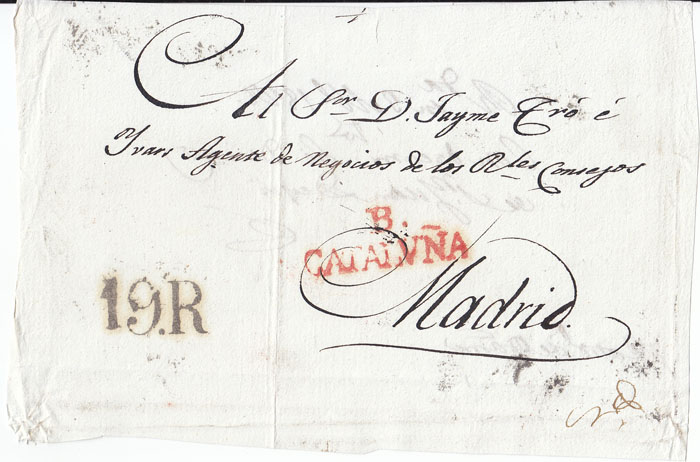 Al Sor. D. Jayme Tró é
Yvars Agente de Negocios de los Rles Consejos
B.
CATALVÑA
Madrid.
19.R